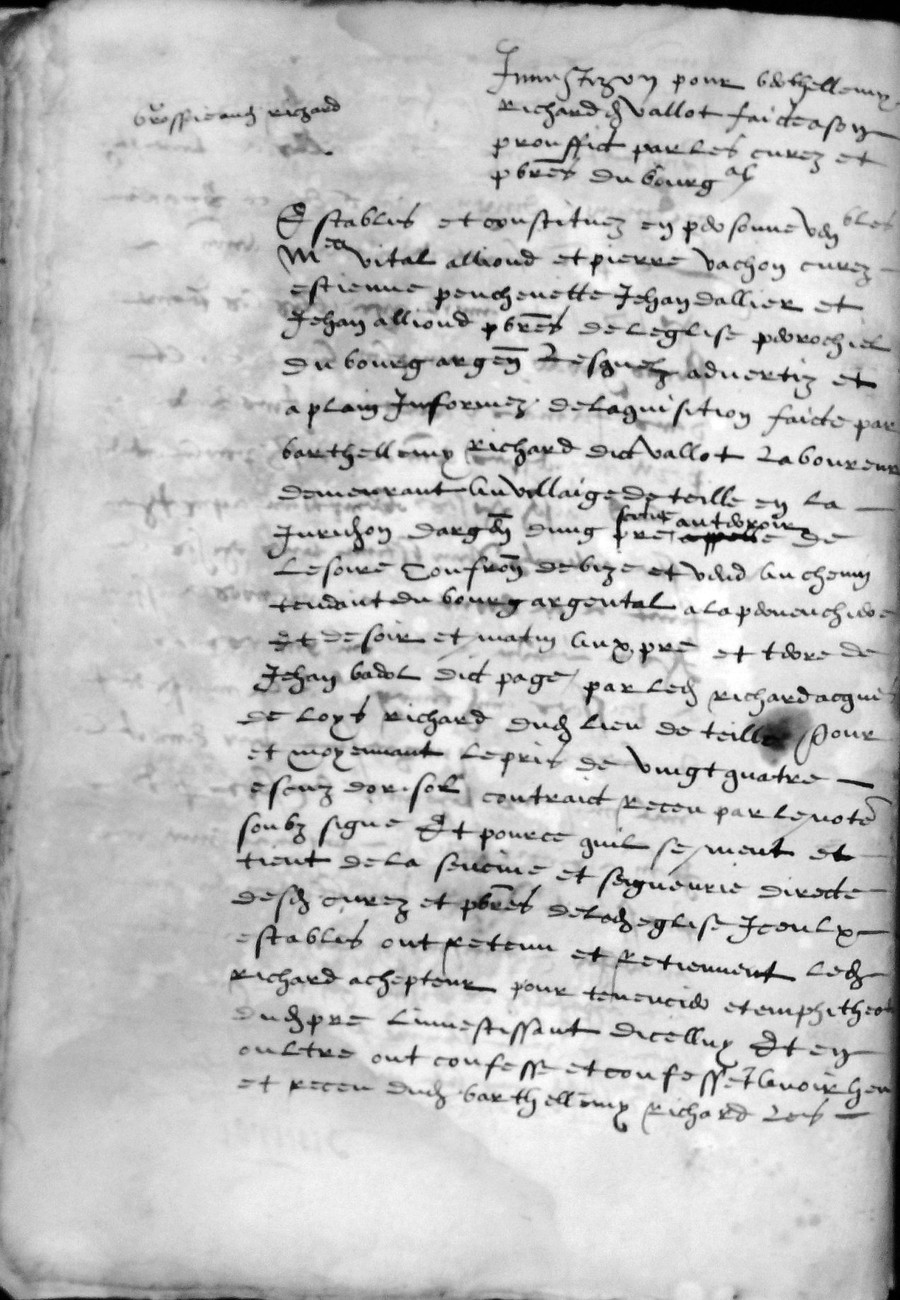 grossie aud richard
Investizon pour berthellemy
Richard d vallot faicte a son
prouffict par les curez et
pbres du bourg al
Establis et constituez en personne ven bles
Mes vital alliond et pierre vachon curez
estienne penchenette Jehan dallier et
Jehan alliond pbres de leglise perrochiel
du bourg argen Lesquelz advertiz et
a plain Informez de laquisition faicte par
barthellemy Richard dict vallot Laboureur
demeurant au villaige de teille en la
Jurizon dargen dung pre de
Lesoire Confron de bize et vend au chemin
tendant du bourg argental a la
Et de soir et matin aux pre et terre de
Jehan badol dict page par led richard acquis
de loys Richard dud lieu de teille Pour
et moyennant le pris de vingt quatre
escuz dor sol contraict receu par le note
soubz signe Et pource quil se ment et
tient de la censive et seigneurie directe
desd curez et pbres de lad eglise Iceulx
establis ont retenu et retiennent led
Richard achepteur pour tenencier et emphitheot
dud pre Linvestissant dicelluy Et en
oultre ont confesse et confessent avoir heu
et receu dud barthellemy Richard Les